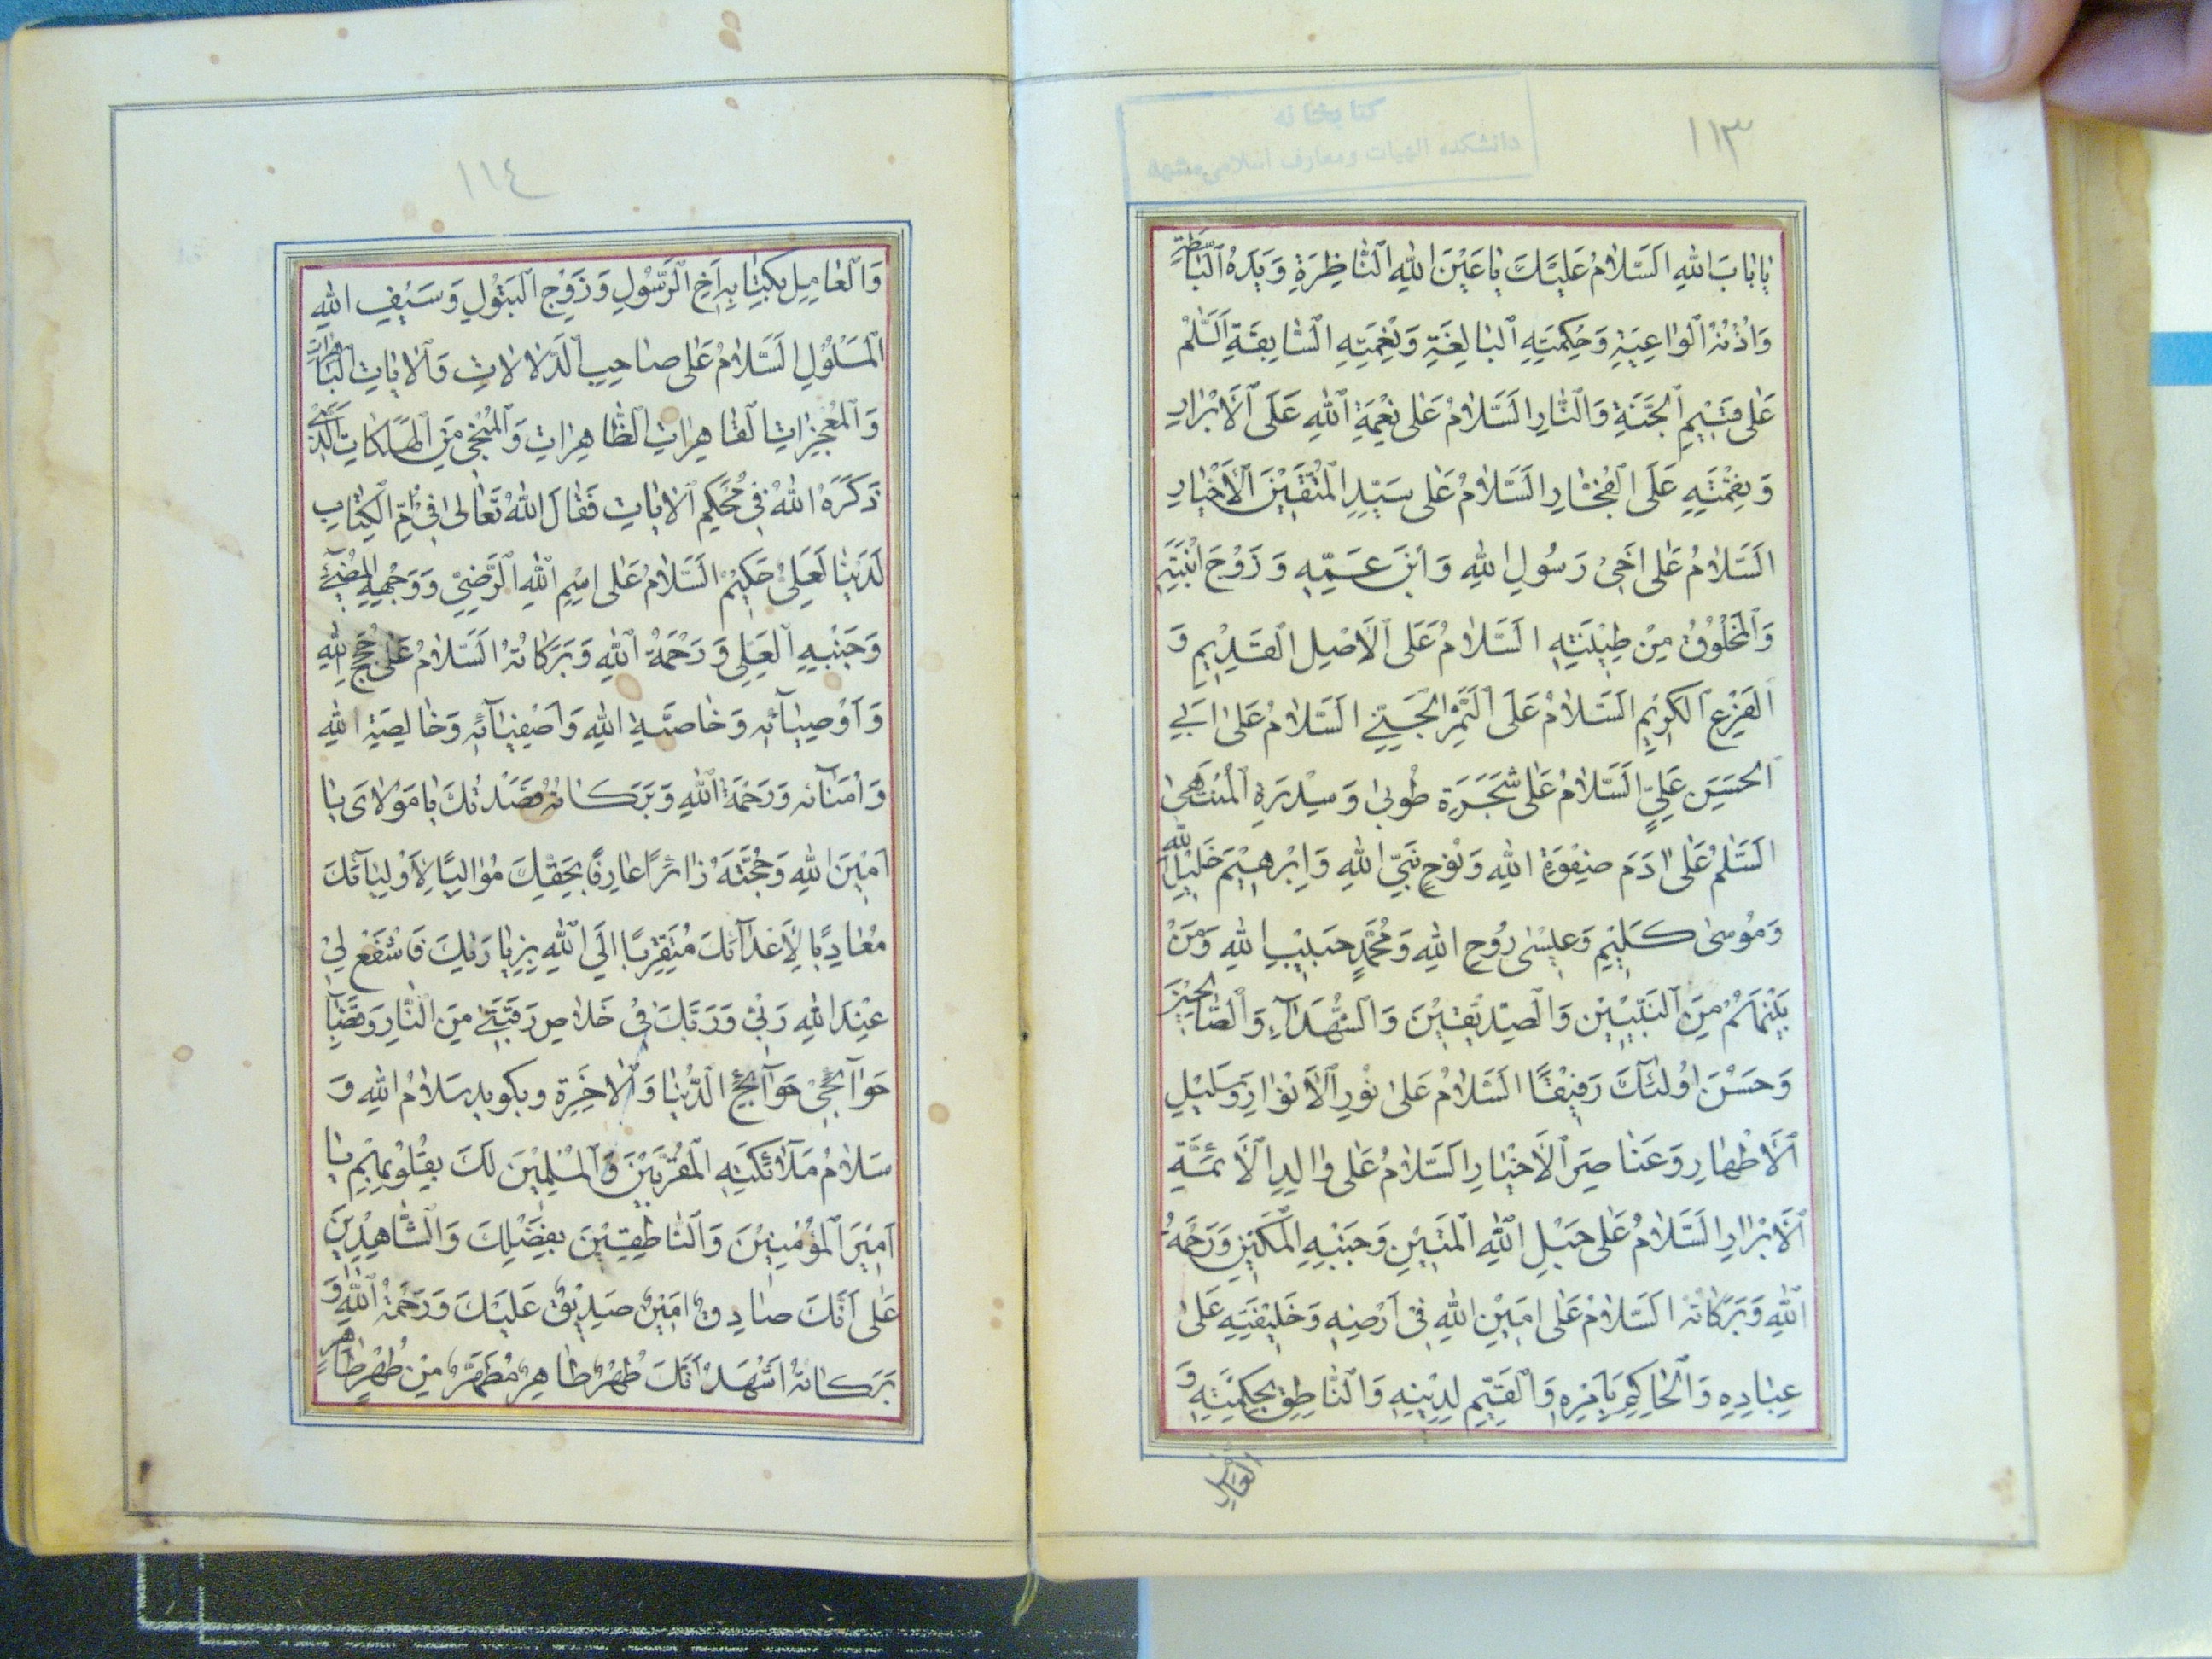 كتابخانه
دانشكده الهیات و معارف اسلامی مشهد
۱۱۳
یٰا بٰابَ اللّٰهِ اَلسَّلٰامُ عَلَيْكَ یٰا عَيْنَ اللّٰهِ النّٰاظِرَةِ وَ يَدَهُ الْبٰاسِطَةِ
وَ اُذُنَهُ الْوٰاعِيَةِ وَ حِكْمَتِهِ الْبٰالِغَةِ وَ نِعْمَتِهِ السّٰابِقَةِ اَلسَّلٰمُ
عَلٰى قَسِيْمِ الْجَنَّةِ وَ النّٰارِ اَلسَّلٰامُ عَلٰى نِعْمَةِ اللّٰهِ عَلَى الْاَبْرٰارِ
وَ نِقْمَتِهِ عَلَى الْفُجّٰارِ اَلسَّلٰامُ عَلٰى سَيِّدِ الْمُتَّقِيْنَ الْاَخْيٰارِ
اَلسَّلٰامُ عَلٰى اَخِىْ رَسُولِ اللّٰهِ وَ ابْنِ عَمِّهِ وَ زَوْجِ ابْنَتِهِ
وَ الْمَخْلُوْقِ مِنْ طِيْنَتِهِ اَلسَّلٰامُ عَلَى الْاَصْلِ الْقَدِيْمِ وَ
الْفَرْعِ الْكَرِيْمِ اَلسَّلٰامُ عَلَى الثَّمَرِ الْجَنِيِّ اَلسَّلٰامُ عَلٰى اَبِي
الْحَسَنِ عَلِيٍّ اَلسَّلٰامُ عَلٰى شَجَرَةِ طُوْبٰى وَ سِدْرَةِ الْمُنْتَهٰى
اَلسَّلٰمُ عَلٰى اٰدَمَ صِفْوَةِ اللّٰهِ وَ نُوْحٍ نَبِيِّ اللّٰهِ وَ اِبْرٰهِيْمَ خَلِيْلِ اللّٰهِ
وَ مُوْسٰى كَلِيْمِ وَ عِيْسٰى رُوْحِ اللّٰهِ وَ مُحَمَّدٍ حَبِيْبِ اللّٰهِ وَ مَنْ
بَيْنَهُمْ مِنَ النَّبِيّٖيْنَ وَ الصِّدّٖيْقِيْنَ وَ الشُّهَدٰآءِ وَ الصّٰالِحِيْنَ
وَ حَسُنَ اُولٰئِكَ رَفِيْقًا اَلسَّلٰامُ عَلٰى نُوْرِ الْاَنْوٰارِ وَ سَلِيْلِ
الْاَطْهٰارِ وَ عَنٰاصِرِ الْاَخْيٰارِ اَلسَّلٰامُ عَلٰى وٰالِدِ الْاَئِمَّةِ
الْاَبْرٰارِ اَلسَّلٰامُ عَلٰى حَبْلِ اللّٰهِ الْمَتِيْنِ وَ جَنْبِهِ الْمَكِيْنِ وَ رَحْمَةُ
اللّٰهِ وَ بَرَكٰاتُهُ اَلسَّلٰامُ عَلٰى اَمِيْنِ اللّٰهِ فِىْ اَرْضِهِ وَ خَلِيْفَتِهِ عَلٰى
عِبٰادِهِ وَ الْحٰاكِمِ بِاَمْرِهِ وَ الْقَيِّمِ لِدِيْنِهِ وَ النّٰاطِقِ بِحِكْمَتِهِ وَ
العامل
۱۱٤
وَ الْعٰامِلِ بِكِتٰابِهِ اَخِ الرَّسُوْلِ وَ زَوْجِ الْبَتُوْلِ وَ سَيْفِ اللّٰهِ
الْمَسْلُوْلِ اَلسَّلٰامُ عَلٰى صٰاحِبِ الدَّلٰالٰاتِ وَ الْاٰيٰاتِ الْبٰاهِرٰاتِ
وَ الْمُعْجِزٰاتِ الْقٰاهِرٰاتِ الظّٰاهِرٰاتِ وَ الْمُنْجِى مِنَ الْهَلَكٰاتِ الَّذِىْ
ذَكَرَهُ اللّٰهُ فِىْ مُحْكَمِ الْاٰيٰاتِ فَقٰالَ اللّٰهُ تَعٰالٰى فِىْ اُمِّ الْكِتٰابِ
لَدَيْنٰا لَعَلِىٌّ حَكِيْمٌ اَلسَّلٰامُ عَلٰى اِسْمِ اللّٰهِ الرَّضِيِّ وَ وَجْهِهِ الْمُضِىۤءِ
وَ جَنْبِهِ الْعَلِيِ وَ رَحْمَةُ اللّٰهِ وَ بَرَكٰاتُهُ اَلسَّلٰامُ عَلٰى حُجَجِ اللّٰهِ
وَ اَوْصِيٰآئِهِ وَ خٰاصَّةِ اللّٰهِ وَ اَصْفِيٰآئِهِ وَ خٰالِصَةِ اللّٰهِ
وَ اُمَنٰآئِهِ وَ رَحْمَةُ اللّٰهِ وَ بَرَكٰاتُهُ قَصَدْتُكَ یٰا مَوْلٰاىَ یٰا
اَمِيْنَ اللّٰهِ وَ حُجَّتَهُ زٰائِرًا عٰارِفًا بِحَقِّكَ مُوٰالِيًا لِاَوْلِيٰآئِكَ
مُعٰادِيًا لِاَعْدٰآئِكَ مُتَقَرِّبًا اِلَى اللّٰهِ بِزِيٰارَتِكَ فَاشْفَعْ لِيْ
عِنْدَ اللّٰهِ رَبِّىْ وَ رَبِّكَ فِىْ خَلٰاصِ رَقَبَتِىْ مِنَ النّٰارِ وَ قَضٰآءِ
حَوٰآئِجِىْ حَوٰآئِجِ الدُّنْيٰا وَ الْاٰخِرَةِ و بكويد سَلٰامُ اللّٰهِ وَ
سَلٰامُ مَلٰآئِكَتِهِ الْمُقَرَّبِيْنَ وَ الْمُسْلِمِيْنَ لَكَ بِقُلُوْبِهِمْ یٰا
اَمِيْرَ الْمُؤْمِنِيْنَ وَ النّٰاطِقِيْنَ بِفَضْلِكَ وَ الشّٰاهِدِيْنَ
عَلٰى اَنَّكَ صٰادِقٌ اَمِيْنٌ صِدِّيْقٌ عَلَيْكَ وَ رَحْمَةُ اللّٰهِ وَ
بَرَكٰاتُهُ اَشْهَدُ اَنَّكَ طُهْرٌ طٰاهِرٌ مُطَهَّرٌ مِنْ طُهْرٍ طٰاهِرٍ